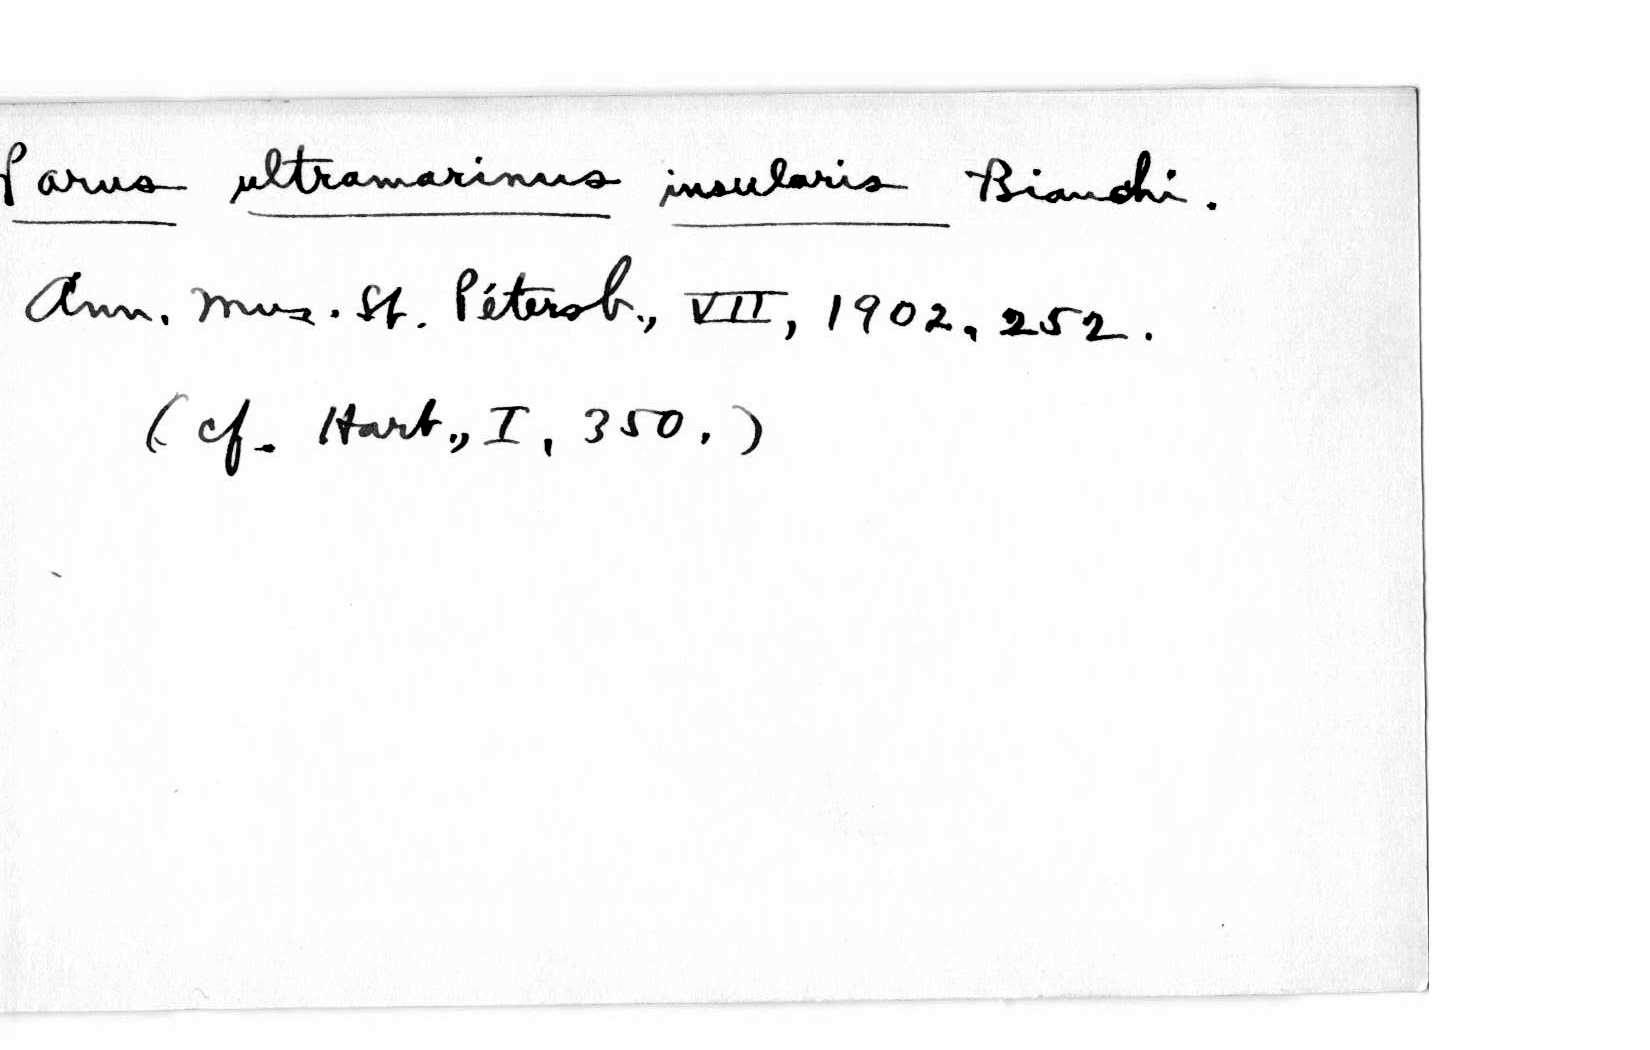 Parus ultramarinus insularis Bianchi.
Ann. Mus. St. Pétersb., VII, 1902, 252.
(cf. Hart., I, 350.)